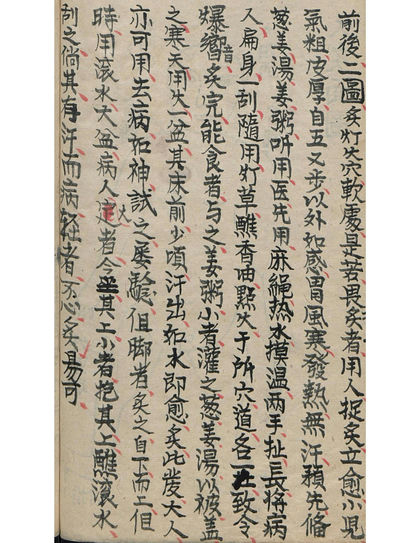 前後二圖炙灯火穴軟處是若畏炙者用人捉炙立愈小児
氣粗皮厚自五又步以外如感冒風寒發熱無汗須先俻
葱姜湯姜粥听用医先用麻繩热水摸温兩手扯長將病
人扁身一刮随用灯草醮香油點火于所穴道各一壮致令
爆响音炙完能食者与之姜粥小者灌之葱姜湯以被盖
之寒天用火一盆其床前少頃汗出如水即愈炙此度大人
亦可用去病如神試之屡驗但脚者炙之自下而上但
時用滚水大盆病人大者令坐其上小者抱其上醮滚水
刮之倘其有汗而病轻者不必炙易可